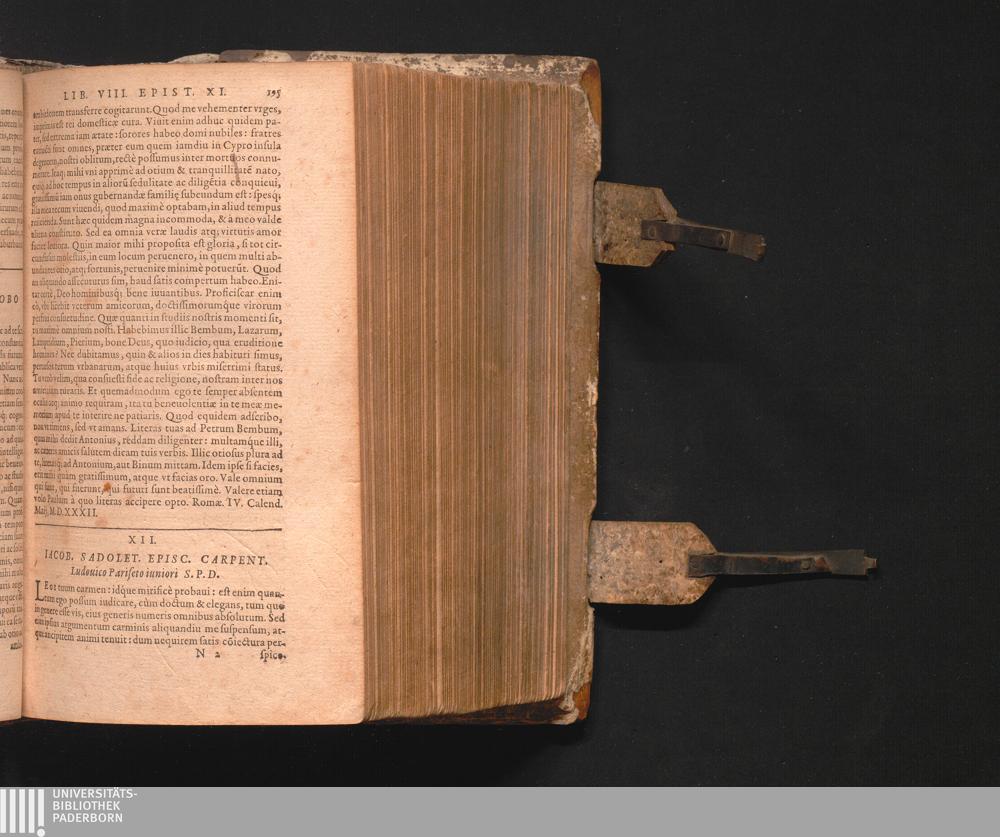 LIB. VIII. EPIST. XI. 195
ambitionem transferre cogitarunt. Quod me vehementer vrges,
inprimis est rei domesticæ cura. Viuit enim adhuc quidem pa-
ter, sed extrema iam ætate: sorores habeo domi nubiles: fratres
extincti sunt omnes, præter eum quem iamdiu in Cypro insula
degentem, nostri oblitum, rectè possumus inter mortuos connu-
merare. Itaq; mihi vni apprimè ad otium & tranquillitatẽ nato,
quiq; ad hoc tempus in aliorũ sedulitate ac diligẽtia conquieui,
grauissimũ iam onus gubernandæ familię subeundum est: spesq;
illa mea tecum viuendi, quod maximè optabam, in aliud tempus
reiicienda. Sunt hæc quidem magna incommoda, & à meo valde
aliena constituto. Sed ea omnia veræ laudis atq; virtutis amor
faciet leuiora. Quin maior mihi proposita est gloria, si tot cir-
cunfusus molestiis, in eum locum peruenero, in quem multi ab-
undantes otio, atq; fortunis, peruenire minimè potuerũt. Quod
an aliquando assecuturus sim, haud satis compertum habeo. Eni-
tar certè, Deo hominibusq́; bene iuuantibus. Proficiscar enim
eò, vbi licebit veterum amicorum, doctissimorumq́ue virorum
perfrui consuetudine. Quæ quanti in studiis nostris momenti sit,
tu maximè omnium nosti. Habebimus illic Bembum, Lazarum,
Lampridium, Pierium, bone Deus, quo iudicio, qua eruditione
homines? Nec dubitamus, quin & alios in dies habituri simus,
pertæsos rerum vrbanarum, atque huius vrbis miserrimi status.
Tu verò velim, qua consuesti fide ac religione, nostram inter nos
amicitiam tuearis. Et quemadmodum ego te semper absentem
oculis atq; animo requiram, ita tu beneuolentiæ in te meæ me-
moriam apud te interire ne patiaris. Quod equidem adscribo,
non vt timens, sed vt amans. Literas tuas ad Petrum Bembum,
quas mihi dedit Antonius, reddam diligenter: multamq́ue illi,
ac cæteris amicis salutem dicam tuis verbis. Illic otiosus plura ad
te, literasq; ad Antonium, aut Binum mittam. Idem ipse si facies,
erit mihi quàm gratissimum, atque vt facias oro. Vale omnium
qui sunt, qui fuerunt, qui futuri sunt beatissimè. Valere etiam
volo Paulum à quo literas accipere opto. Romæ. IV. Calend.
Maij. M.D.XXXII.
XII.
IACOB. SADOLET. EPISC. CARPENT.
Ludouico Pariseto iuniori S.P.D.
LEgi tuum carmen: idq́ue mirificè probaui: est enim quan-
tum ego possum iudicare, cùm doctum & elegans, tum quo
in genere esse vis, eius generis numeris omnibus absolutum. Sed
enim ipsius argumentum carminis aliquandiu me suspensum, at-
que ancipitem animi tenuit: dum nequirem satis cõiectura per-
N 2 spice-
UNIVERSITÄTS-
BIBLIOTHEK
PADERBORN